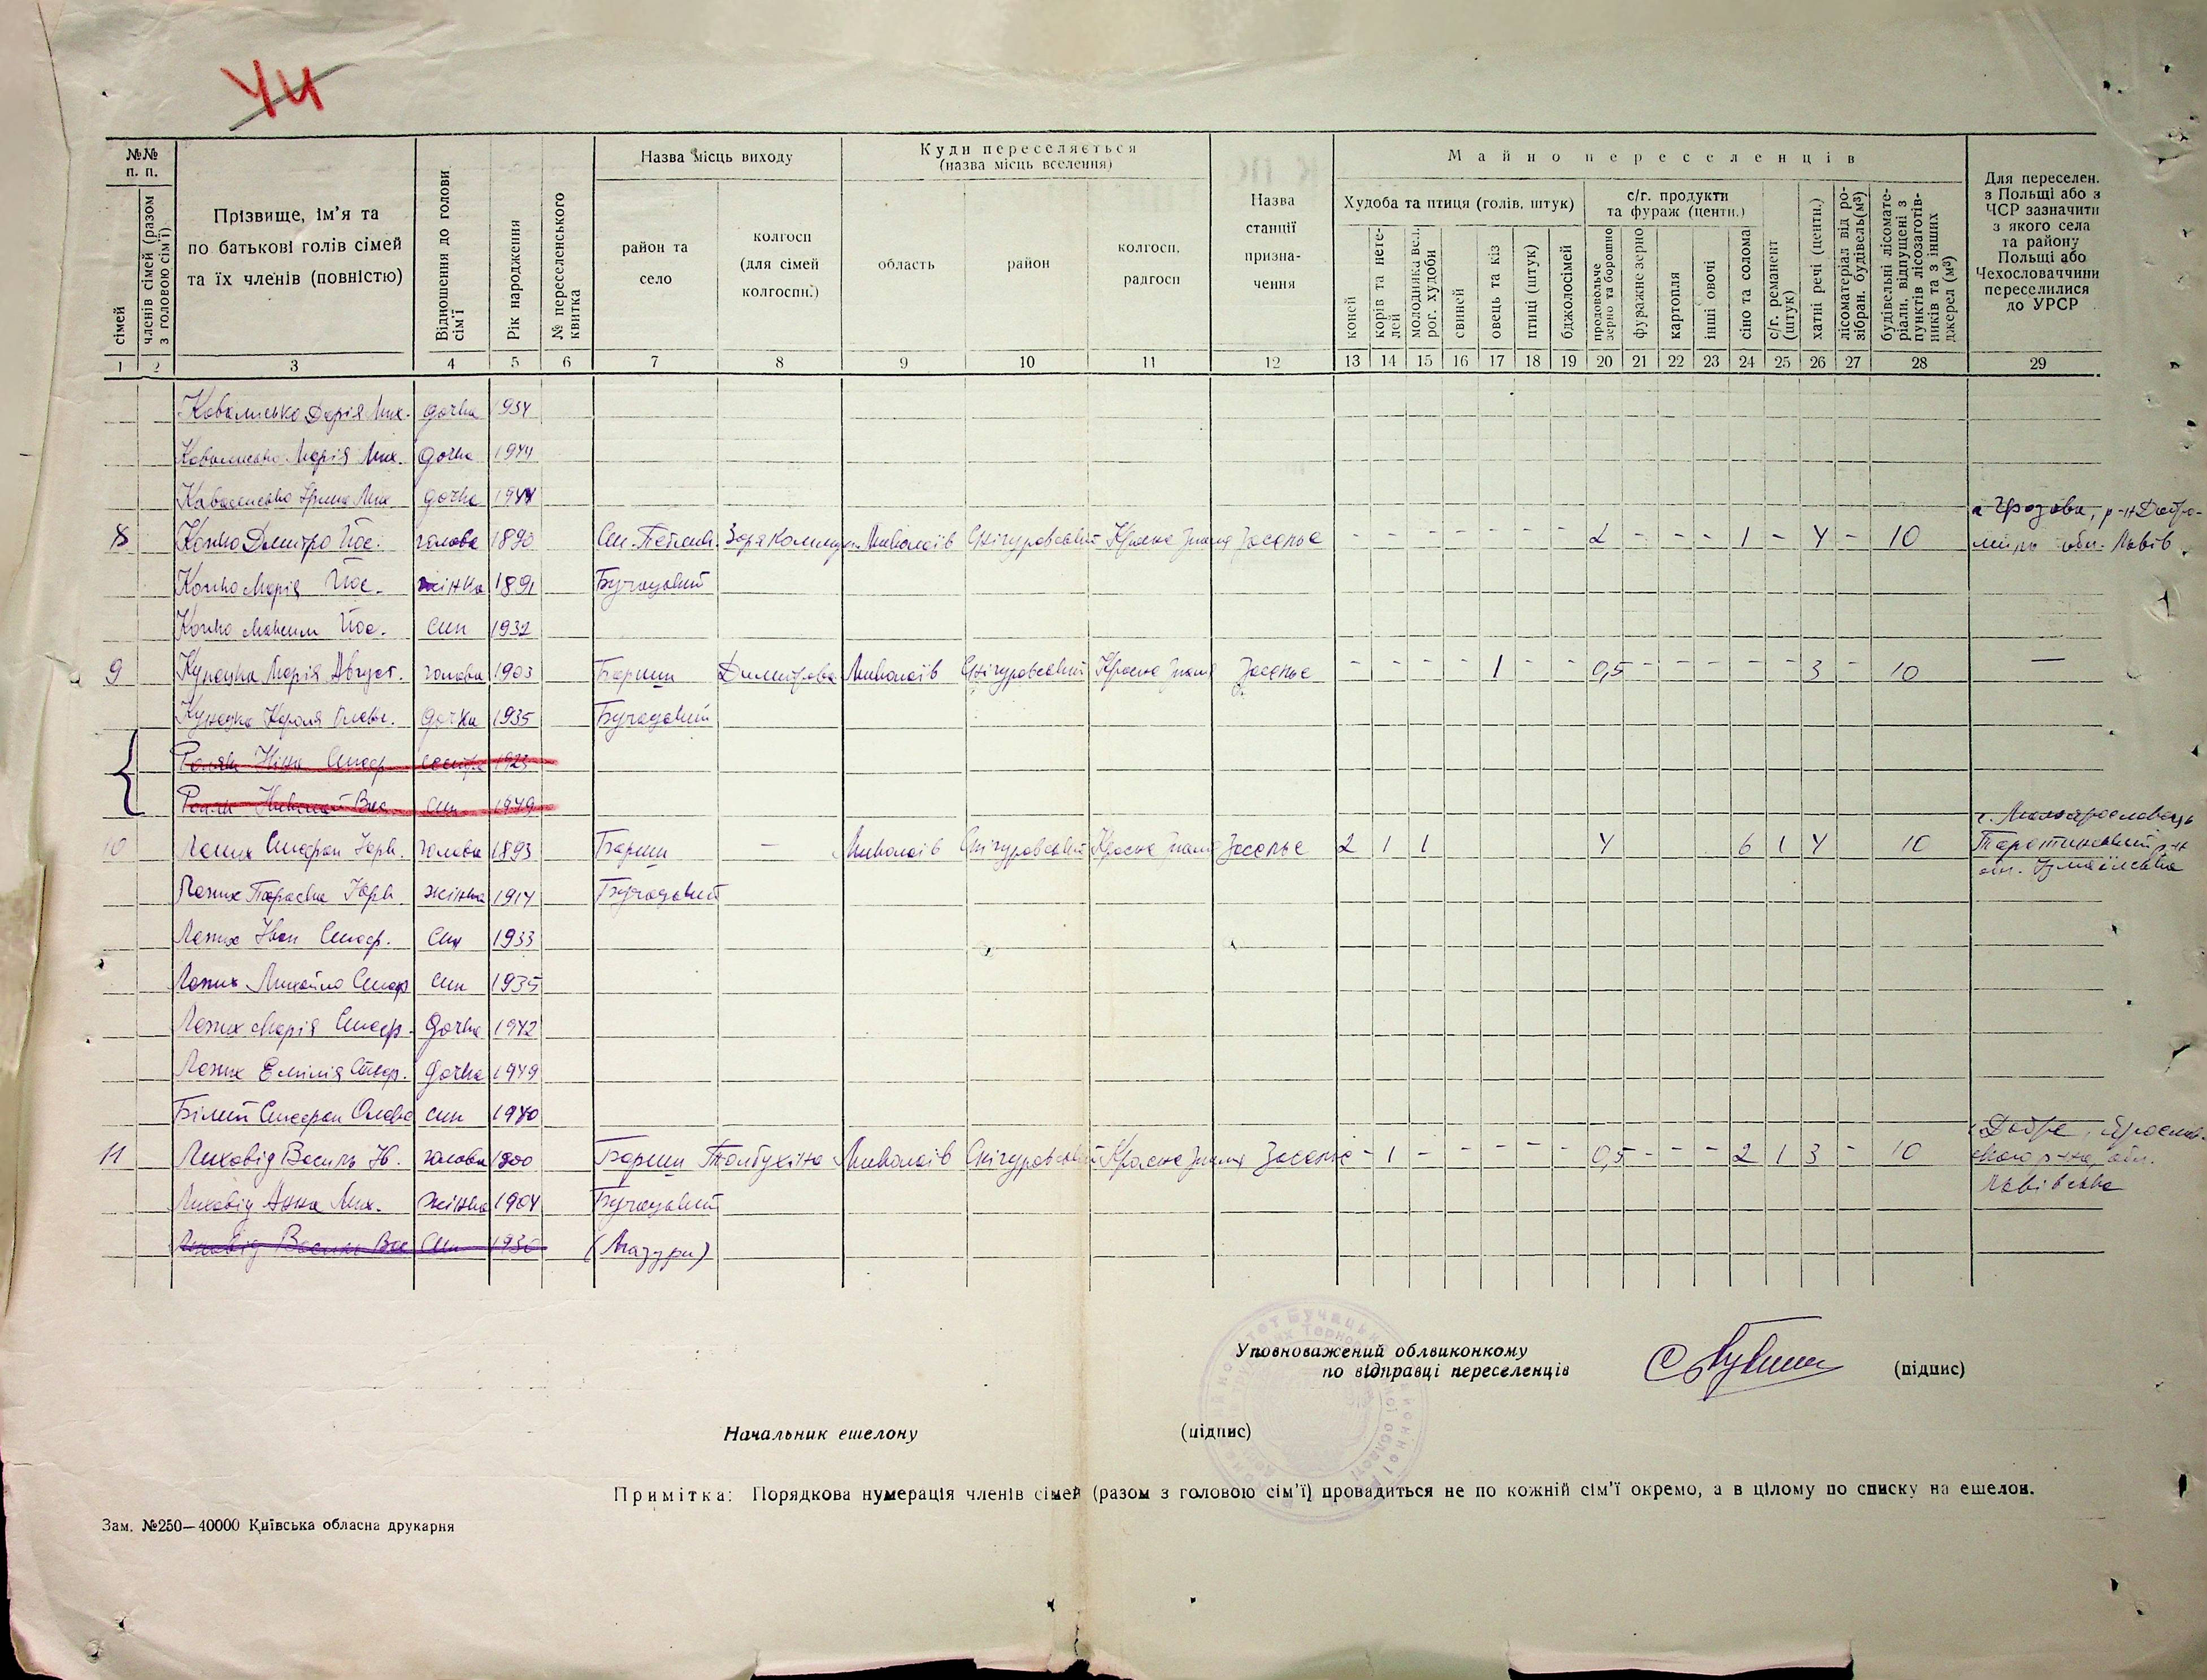 44
№№ п. п.
сімей
членів сімей (разом з головою сім'ї)
Прізвище, ім'я та
по батькові голів сімей
та їх членів (повністю)
Відношення до голови сім'ї
Рік народження
№ переселенського квитка
Назва місць виходу
район та
село
колгосп
(для сімей
колгоспн.)
Куди переселяється
(назва місць вселення)
область
район
колгосп,
радгосп
Назва
станції
призна-
чення
Майно переселенців
Худоба та птиця (голів, штук)
коней
корів та нете-
лей
молодняка вел.
рог. худоби
свиней
овець та кіз
птиці (штук)
бджолосімей
с/г. продукти
та фураж (центн.)
продовольче
зерно та борошно
фуражне зерно
картопля
інші овочі
сіно та солома
с/г. реманент
(штук)
хатні речі (центн.)
лісоматеріал від ро-
зібран. будівель (м³)
будівельні лісомате-
ріали, відпущені з
пунктів лісозаготів-
ників та з інших
джерел (м³)
Для переселен.
з Польщі або з
ЧСР зазначити
з якого села
та району
Польщі або
Чехословаччини
переселилися
до УРСР
1 2 3 4 5 6 7 8 9 10 11 12 13 14 15 16 17 18 19 20 21 22 23 24 25 26 27 28 29
Ковалисько Дарія Мих. дочка 1934
Ковалисько Марія Мих. дочка 1944
Ковалисько Ірина Мих дочка 1944
8 Дмитро Йос. голова 1890 Зоря Комуни Миколаїв Снігуровський Красне Знамя Засельє - - - - - - - 2 - - - 1 - 4 - 10 с. Грозова, р-н Добро-
миль обл. Львів.
Марія Йос. жінка 1891 Бучацький
Максим Йос. син 1932
9 Марія Август. голова 1903 Бариш Димитрова Миколаїв Снігуровський Красне Знамя Засельє - - - - 1 - - 0,5 - - - - - 3 - 10 —
дочка 1935 Бучацький
сестра 1923
син 1949
10 Стефан Юрк. голова 1893 Бариш — Миколаїв Снігуровський Красне Знамя Засельє 2 1 1 4 6 1 4 10 с. Малоярославець
Тарутинський р-н
обл. Ізмаїльська
Параска Юрк. жінка 1914 Бучацький
Іван Стеф. син 1933
Михайло Стеф син 1935
Марія Стеф. дочка 1942
Емілія Стеф. дочка 1949
Білий Стефан син 1940
11 Лиховід Василь голова 1900 Бариш Толбухіна Миколаїв Снігуровський Красне Знамя Засельє - 1 - - - - 0,5 - - - 2 1 3 - 10 Добре, Ярослав-
ського р-на, обл.
Львівська
Лиховід Анна Мих. жінка 1904 Бучацький
Лиховід Василь Вас син 1930 (Мазури)
Уповноважений облвиконкому
по відправці переселенців
(підпис)
Начальник ешелону
(підпис)
Примітка: Порядкова нумерація членів сімей (разом з головою сім'ї) провадиться не по кожній сім'ї окремо, а в цілому по списку на ешелон.
Зам. №250—40000 Київська обласна друкарня